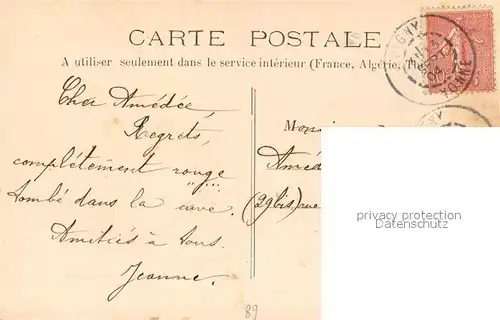 CARTE POSTALE
A utiliser seulement dans le service intérieur (France, Algérie, Tu
Cher Amédée,
Regrets,
complétement rouge
tombé dans la cave.
Amitiés à tous.
Jeanne.
Monsieur
Améd
(29bis) rue
privacy protection
Datenschutz
YONNE
89